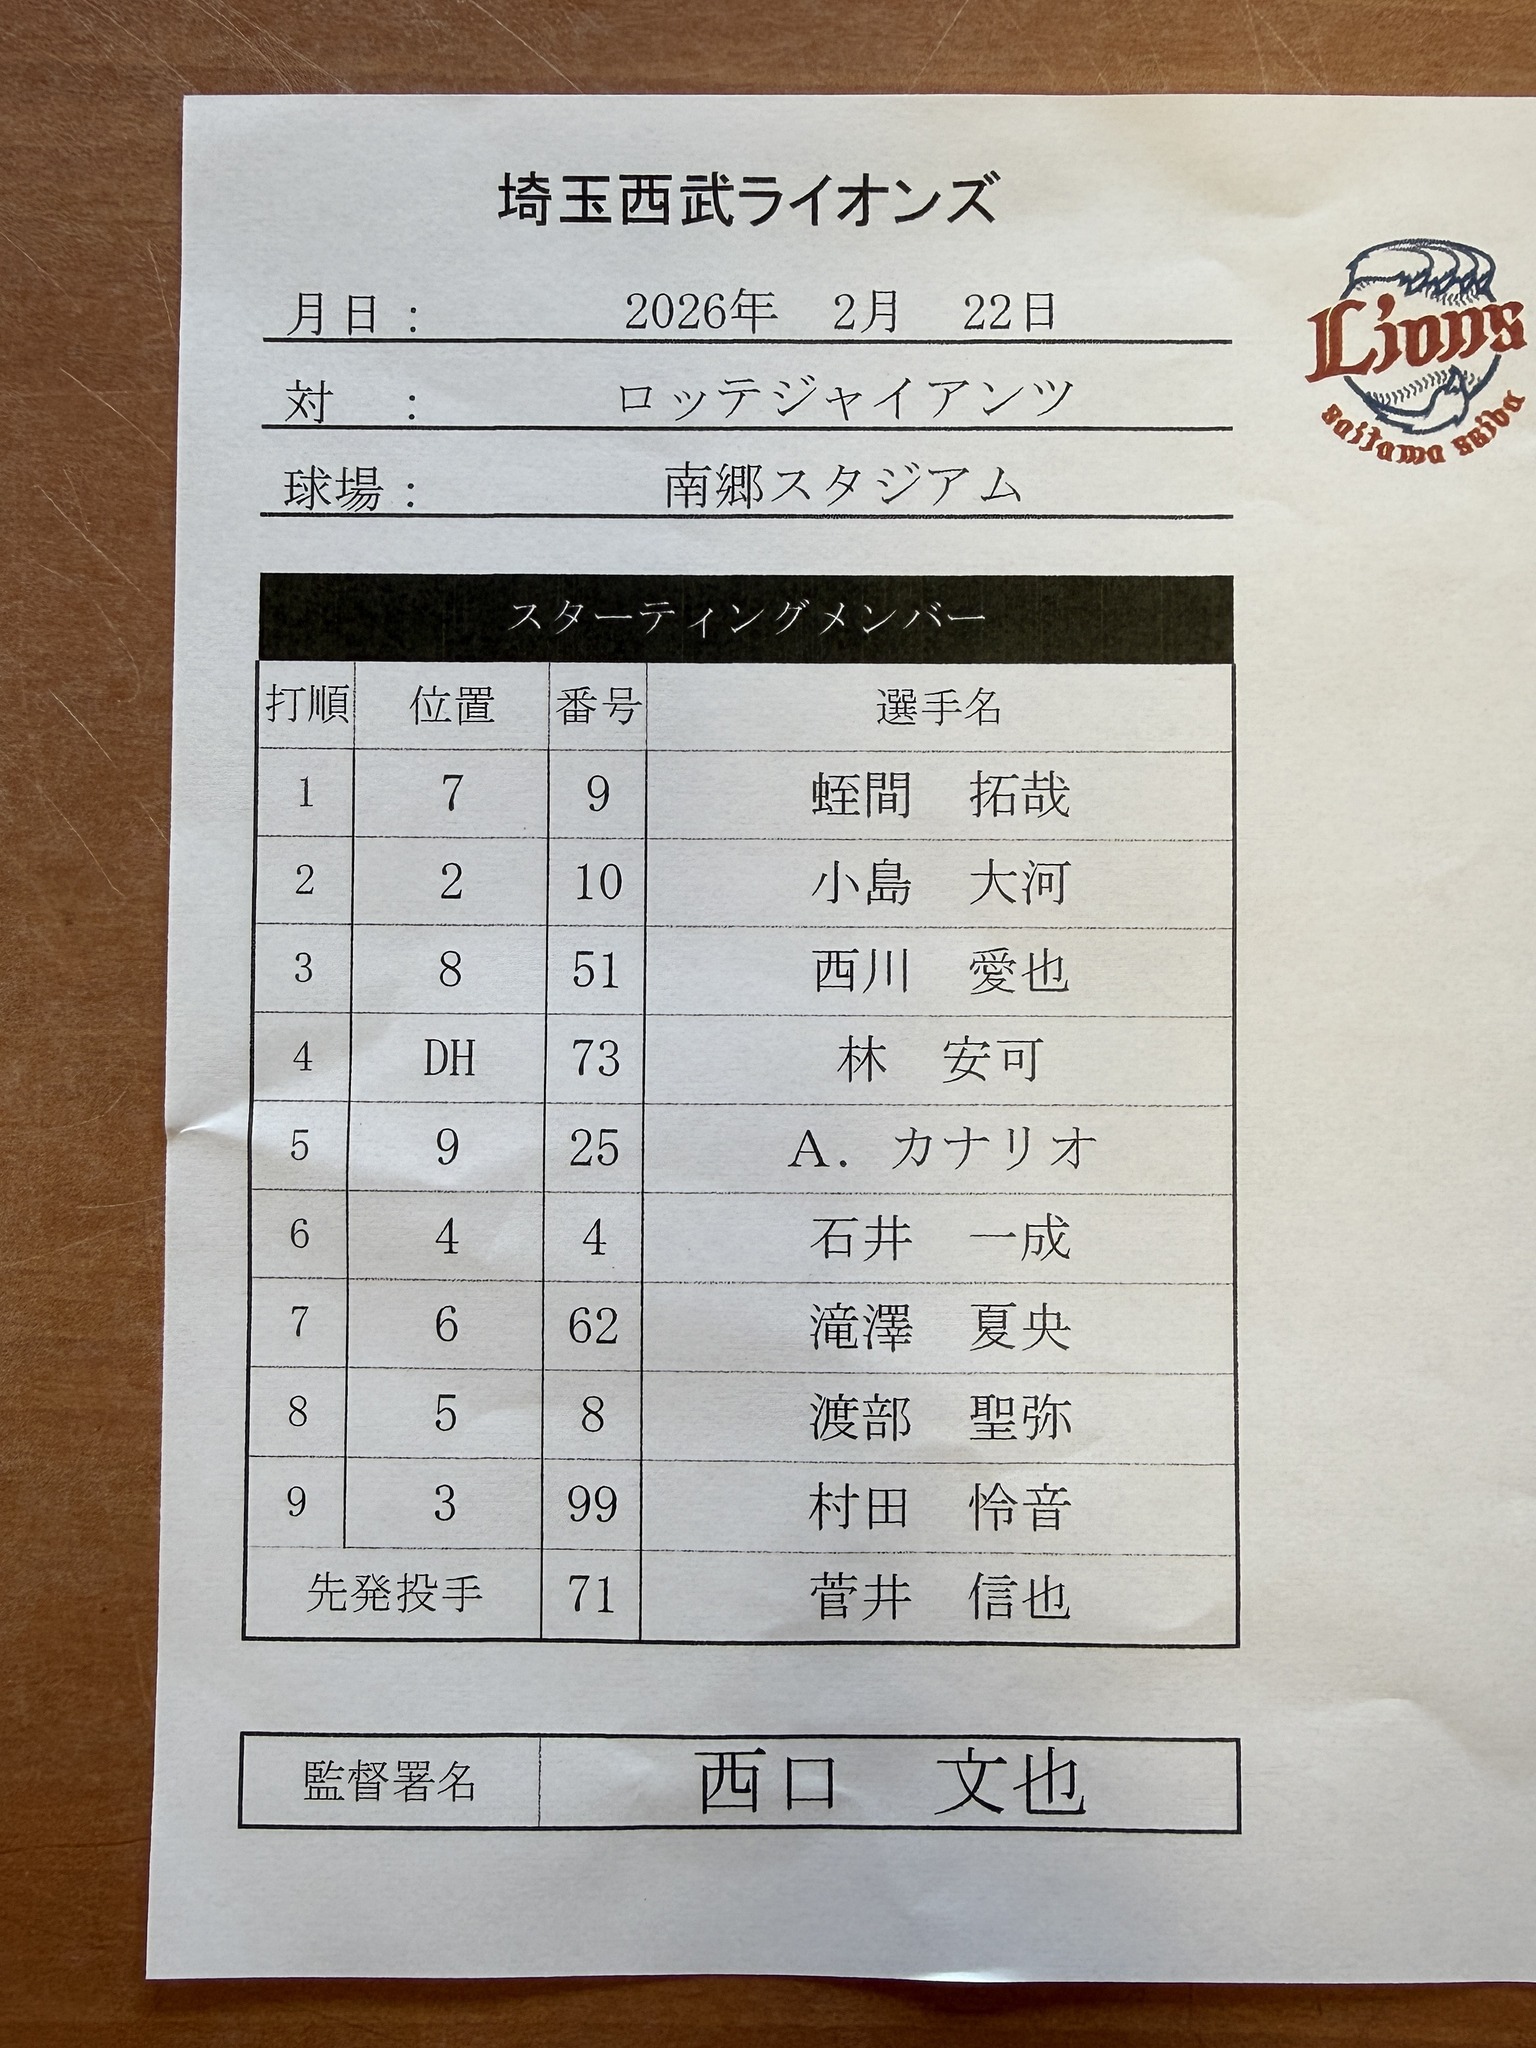 埼玉西武ライオンズ
月日： 2026年 2月 22日
対 ： ロッテジャイアンツ
球場： 南郷スタジアム
Lions
Saitama Seibu
スターティングメンバー
打順 位置 番号 選手名
1 7 9 蛭間 拓哉
2 2 10 小島 大河
3 8 51 西川 愛也
4 DH 73 林 安可
5 9 25 A. カナリオ
6 4 4 石井 一成
7 6 62 滝澤 夏央
8 5 8 渡部 聖弥
9 3 99 村田 怜音
先発投手 71 菅井 信也
監督署名 西口 文也